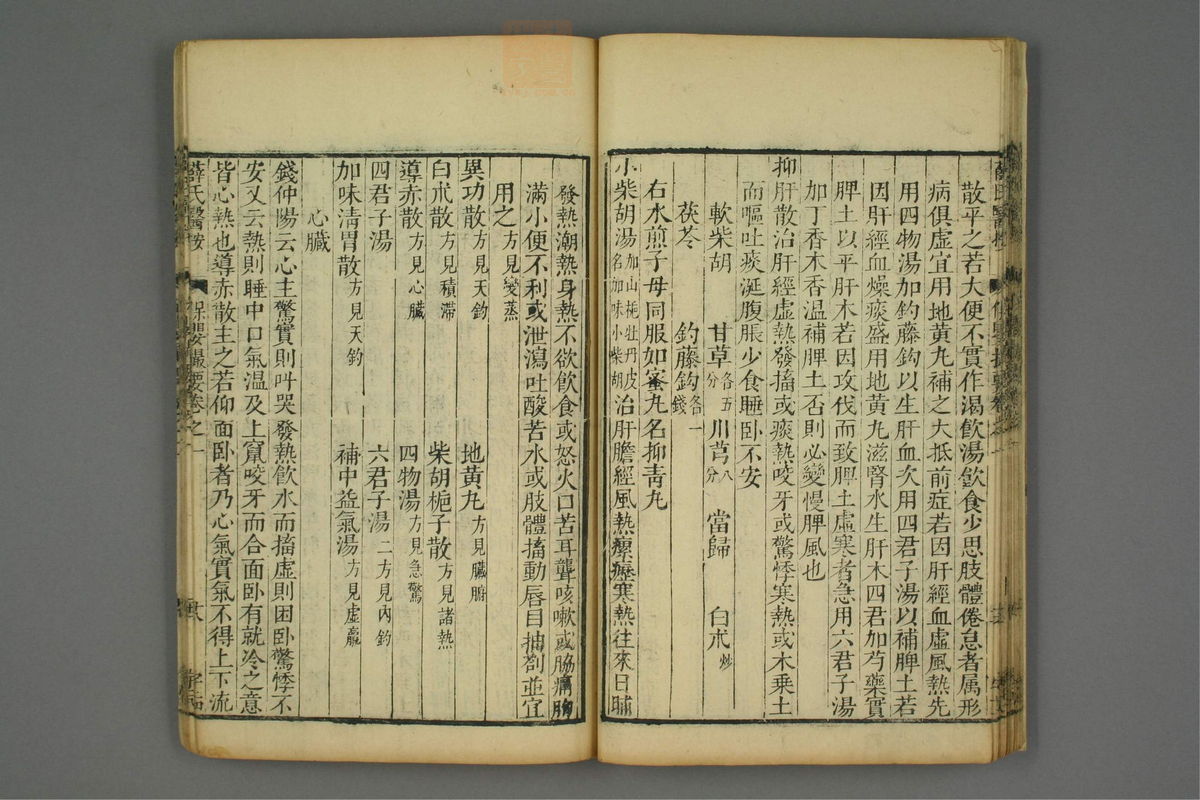 散平之若大便不實作渴飲湯飲食少思肢體倦怠者属形
病俱虚宜用地黄丸補之大抵前症若因肝經血虚風熱先
用四物湯加釣藤鈎以生肝血次用四君子湯以補脾土若
因肝經血燥痰盛用地黄丸滋腎水生肝木四君加芍藥實
脾土以平肝木若因攻伐而致脾土虚寒者急用六君子湯
加丁香木香温補脾土否則必變慢脾風也
抑肝散治肝經虚熱發搐或痰熱咬牙或驚悸寒熱或木乗土
而嘔吐痰涎腹脹少食睡卧不安
軟柴胡 甘草各五分 川芎八分 當歸 白朮炒
茯苓 釣藤鈎各一錢
右水煎子母同服如蜜丸名抑青丸
小柴胡湯加山梔牡丹皮名加味小柴胡治肝膽經風熱瘰癧寒熱往來日晡
發熱潮熱身熱不欲飲食或怒火口苦耳聾咳嗽或脇痛胸
滿小便不利或泄瀉吐酸苦水或肢體搐動唇目抽劄並宜
用之方見變蒸
異功散方見天釣 地黄丸方見臟腑
白朮散方見積滯 柴胡梔子散方見諸熱
導赤散方見心臟 四物湯方見急驚
四君子湯 六君子湯二方見内釣
加味清胃散方見天釣 補中益氣湯方見虚羸
心臟
錢仲陽云心主驚實則呌哭發熱飲水而搐虚則困卧驚悸不
安又云熱則睡中口氣温及上竄咬牙而合面卧有就冷之意
皆心熱也導赤散主之若仰面卧者乃心氣實氣不得上下流
薛氏醫按 保嬰撮要卷之一